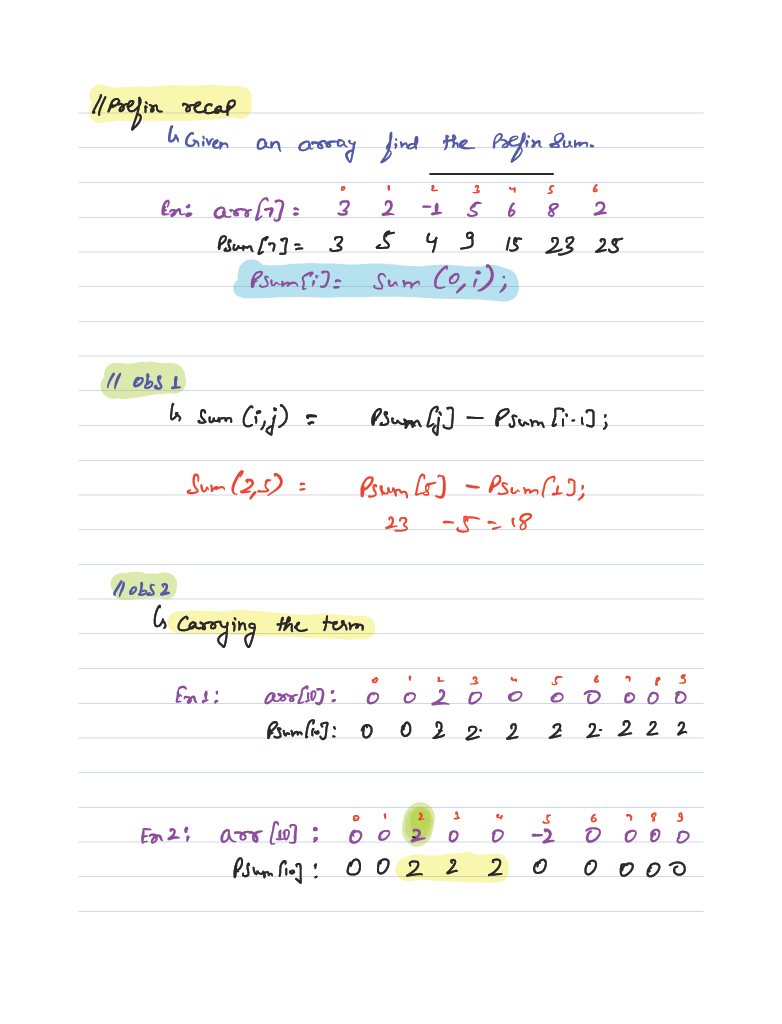 // Prefix recap
↳ Given an array find the Prefix Sum.
0 1 2 3 4 5 6
Ex: arr[7] = 3 2 -1 5 6 8 2
Psum[7] = 3 5 4 9 15 23 25
Psum[i] = Sum (0,i);
// obs 1
↳ Sum (i,j) = Psum[j] - Psum[i-1];
Sum(2,5) = Psum[5] - Psum[1];
23 -5 = 18
// obs 2
↳ Carrying the term
0 1 2 3 4 5 6 7 8 9
Ex 1: arr[10]: 0 0 2 0 0 0 0 0 0 0
Psum[10]: 0 0 2 2 2 2 2 2 2 2
0 1 2 3 4 5 6 7 8 9
Ex 2: arr[10]: 0 0 2 0 0 -2 0 0 0 0
Psum[10]: 0 0 2 2 2 0 0 0 0 0